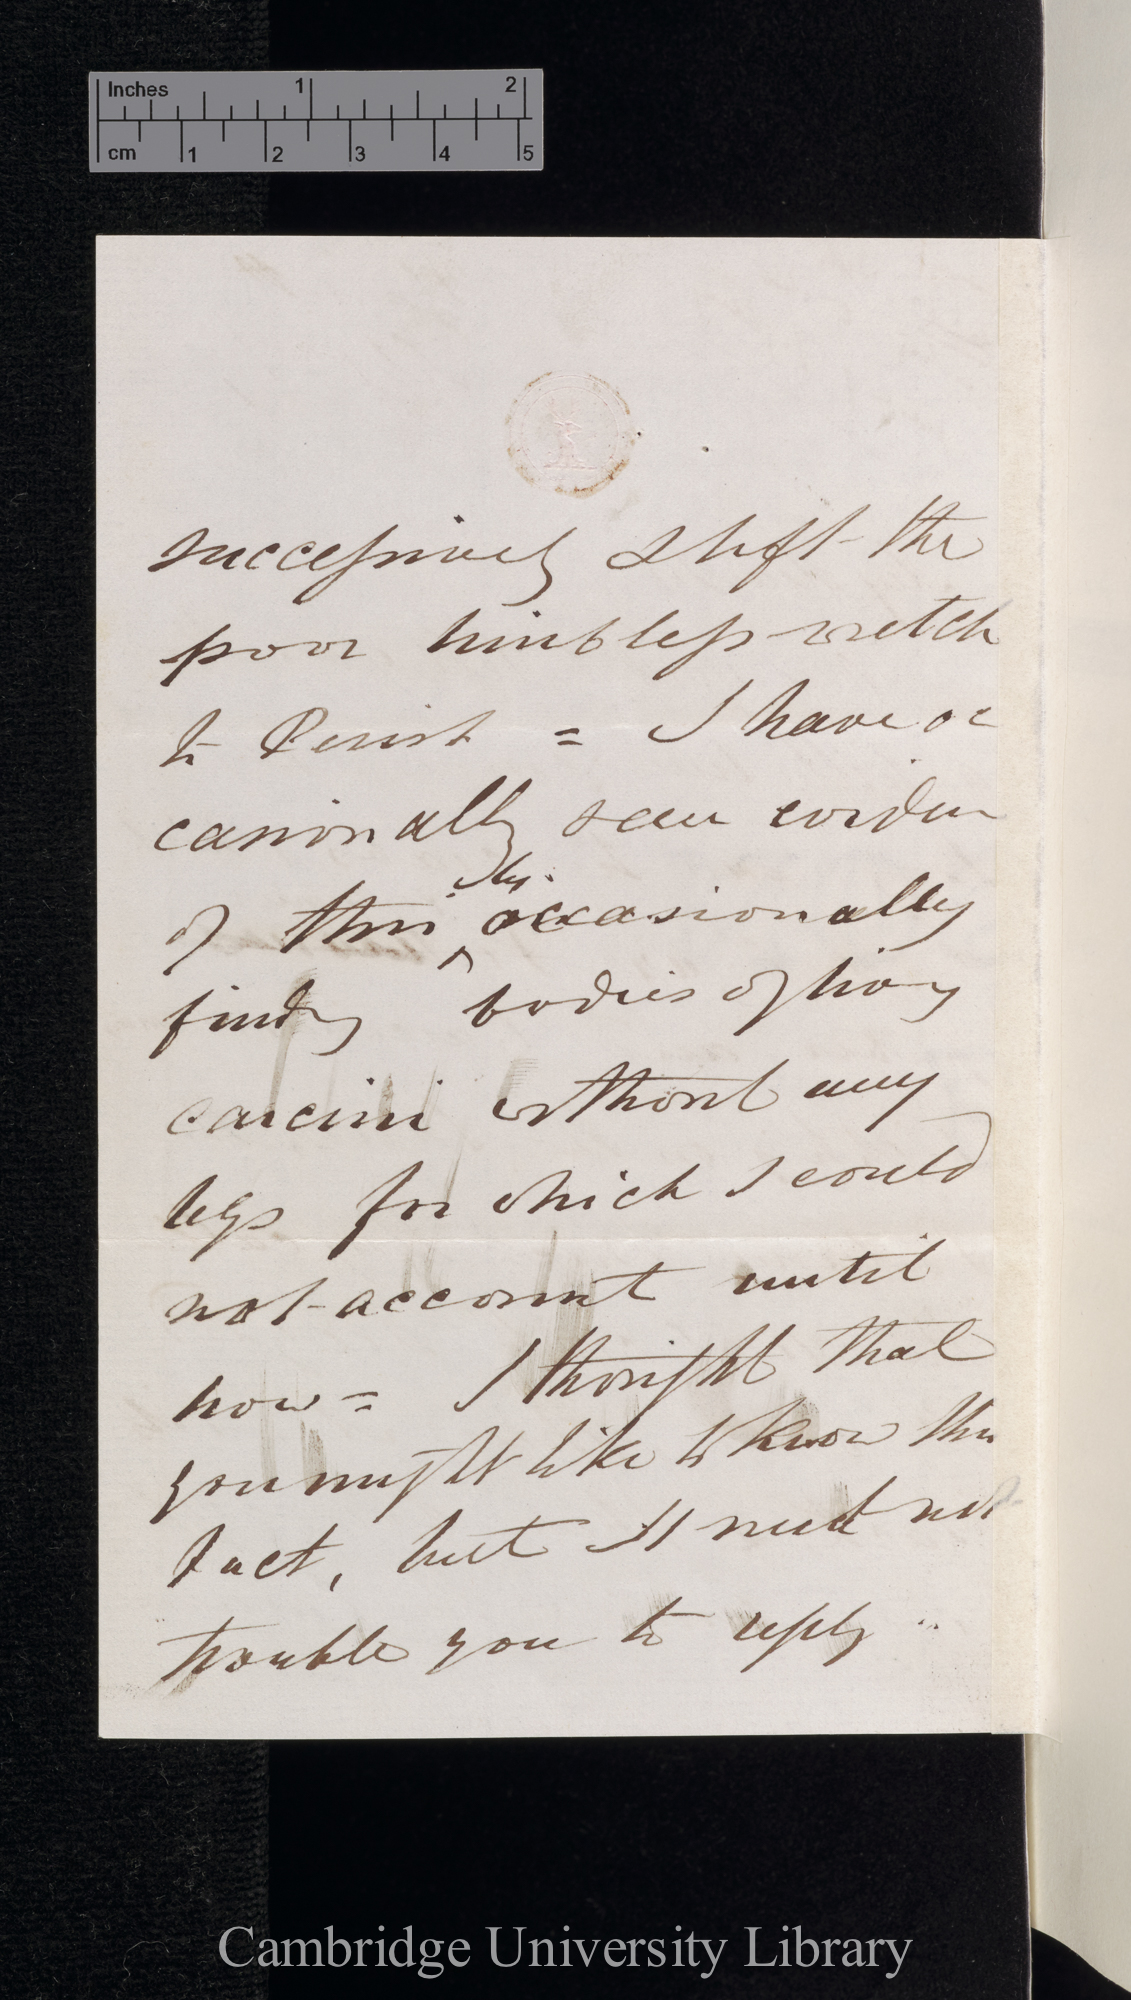 Inches 1 2
cm 1 2 3 4 5
successively & left the
poor limbless wretch
to Perish = I have oc
casionally seen eviden
of this, by occasionally
finding bodies of living
carcini without any
legs for which I could
not account until
now = I thought that
you might like to know this
fact, but It need not
trouble you to reply
Cambridge University Library